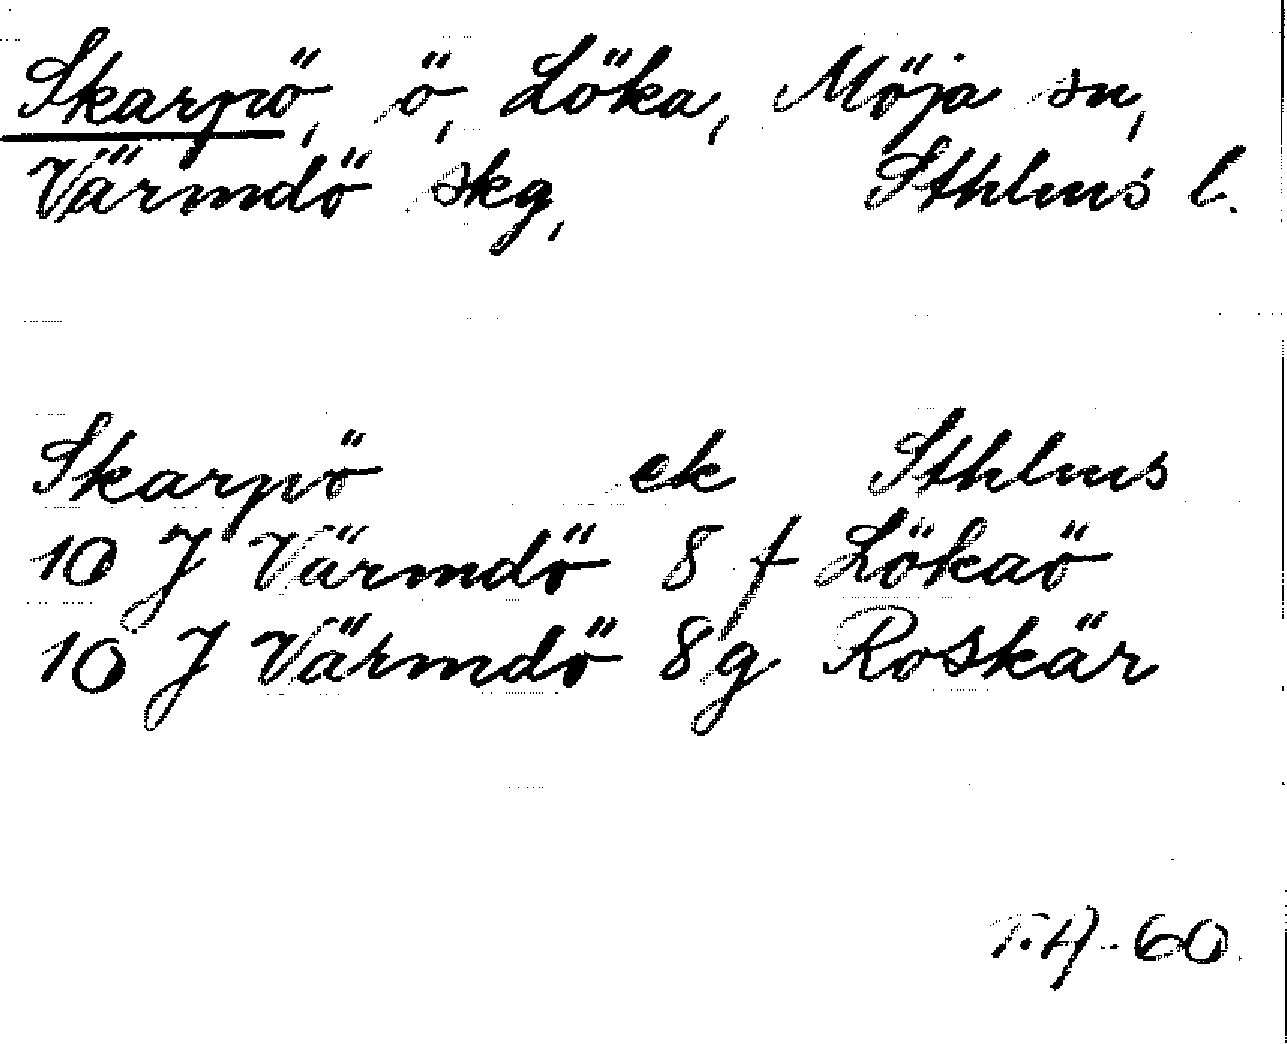 Skarpö, ö, Löka, Möja sn,
Värmdö skg, Sthlms l.
Skarpö ek Sthlms
10 J Värmdö 8 f Lökaö
10 J Värmdö 8g Roskär
T.H-60